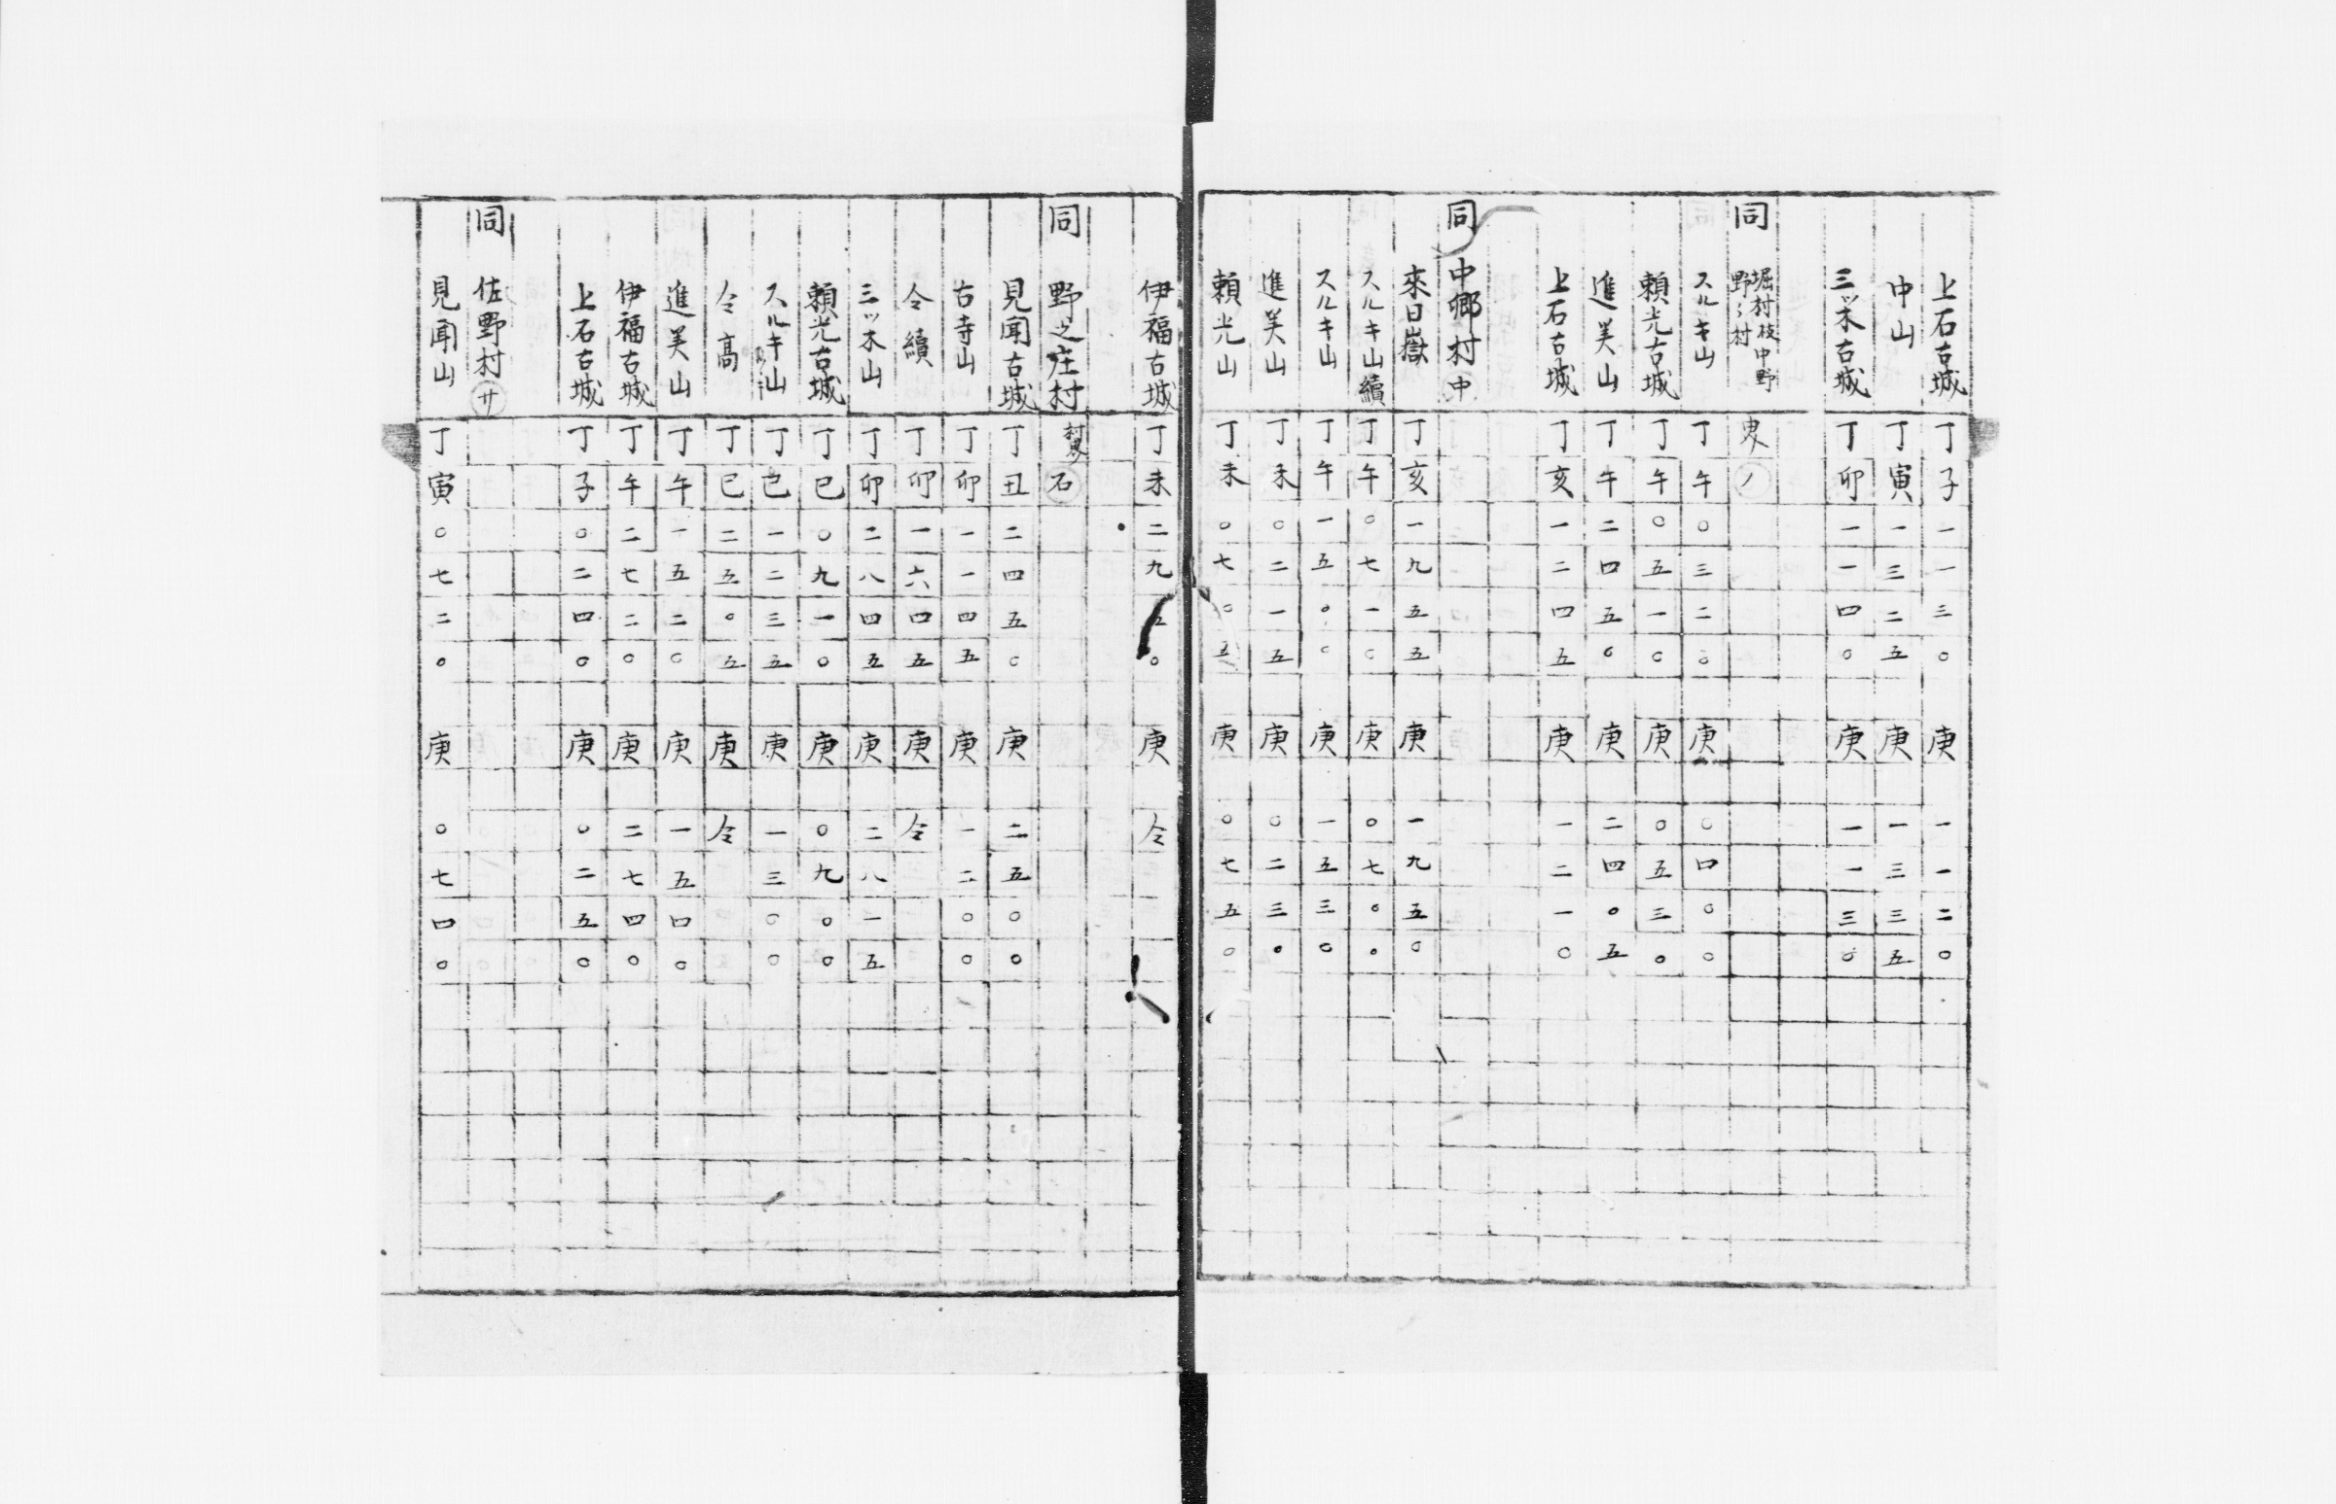 上石古城 丁子一一三〇 庚一一二〇
中山 丁寅一三二五 庚一三三五
三ッ木古城 丁卯一一四〇 庚一一三〇
同 堀村枝中野
野々村
スルキ山 丁午〇三二〇 庚〇四〇〇
頼光古城 丁午〇五一〇 庚〇五三〇
進美山 丁午二四五〇 庚二四〇五
上石古城 丁亥一二四五 庚一二一〇
同 中郷村 中
來日嶽 丁亥一九五五 庚一九五〇
スルキ山續 丁午〇七一〇 庚〇七〇〇
スルキ山 丁午一五〇〇 庚一五三〇
進美山 丁未〇二一五 庚〇二三〇
頼光山 丁未〇七〇五 庚〇七五〇
伊福古城 丁未二九五〇 庚仝
同 野之庄村 石
見聞古城 丁丑二四五〇 庚二五〇〇
古寺山 丁卯一一四五 庚一二〇〇
仝續 丁卯一六四五 庚仝
三ッ木山 丁卯二八四五 庚二八一五
頼光古城 丁巳〇九一〇 庚〇九〇〇
スルキ山 丁巳一二三五 庚一三〇〇
仝高 丁巳二五〇五 庚仝
進美山 丁午一五二〇 庚一五四〇
伊福古城 丁午二七二〇 庚二七四〇
上石古城 丁子〇二四〇 庚〇二五〇
同 佐野村 サ
見聞山 丁寅〇七二〇 庚〇七四〇